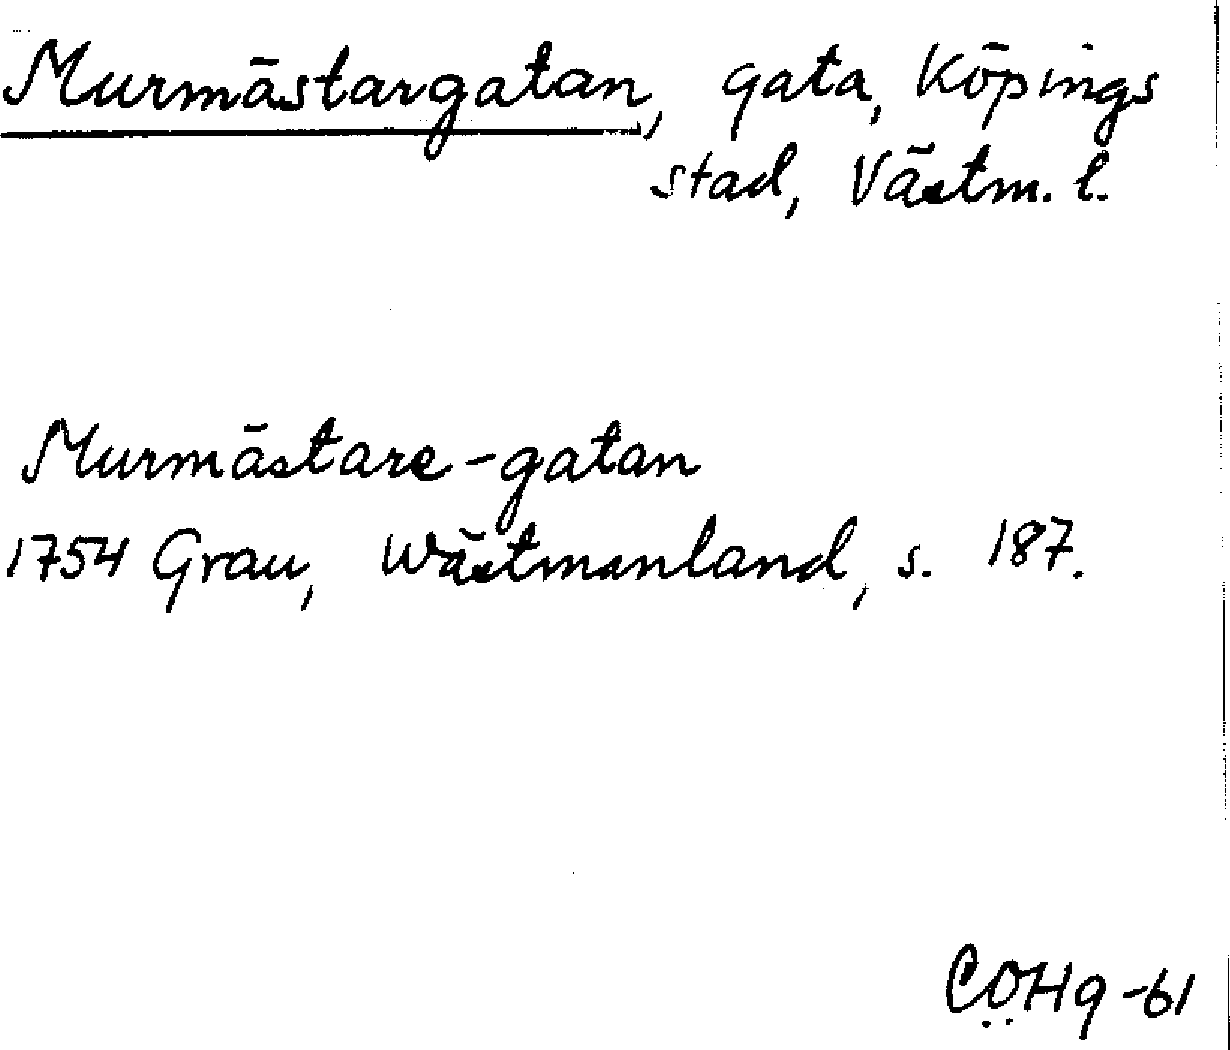 Murmästargatan, gata, Köpings
stad, Västm. l.
Murmästare-gatan
1754 Grau, Wästmanland, s. 187.
CÖHg -61